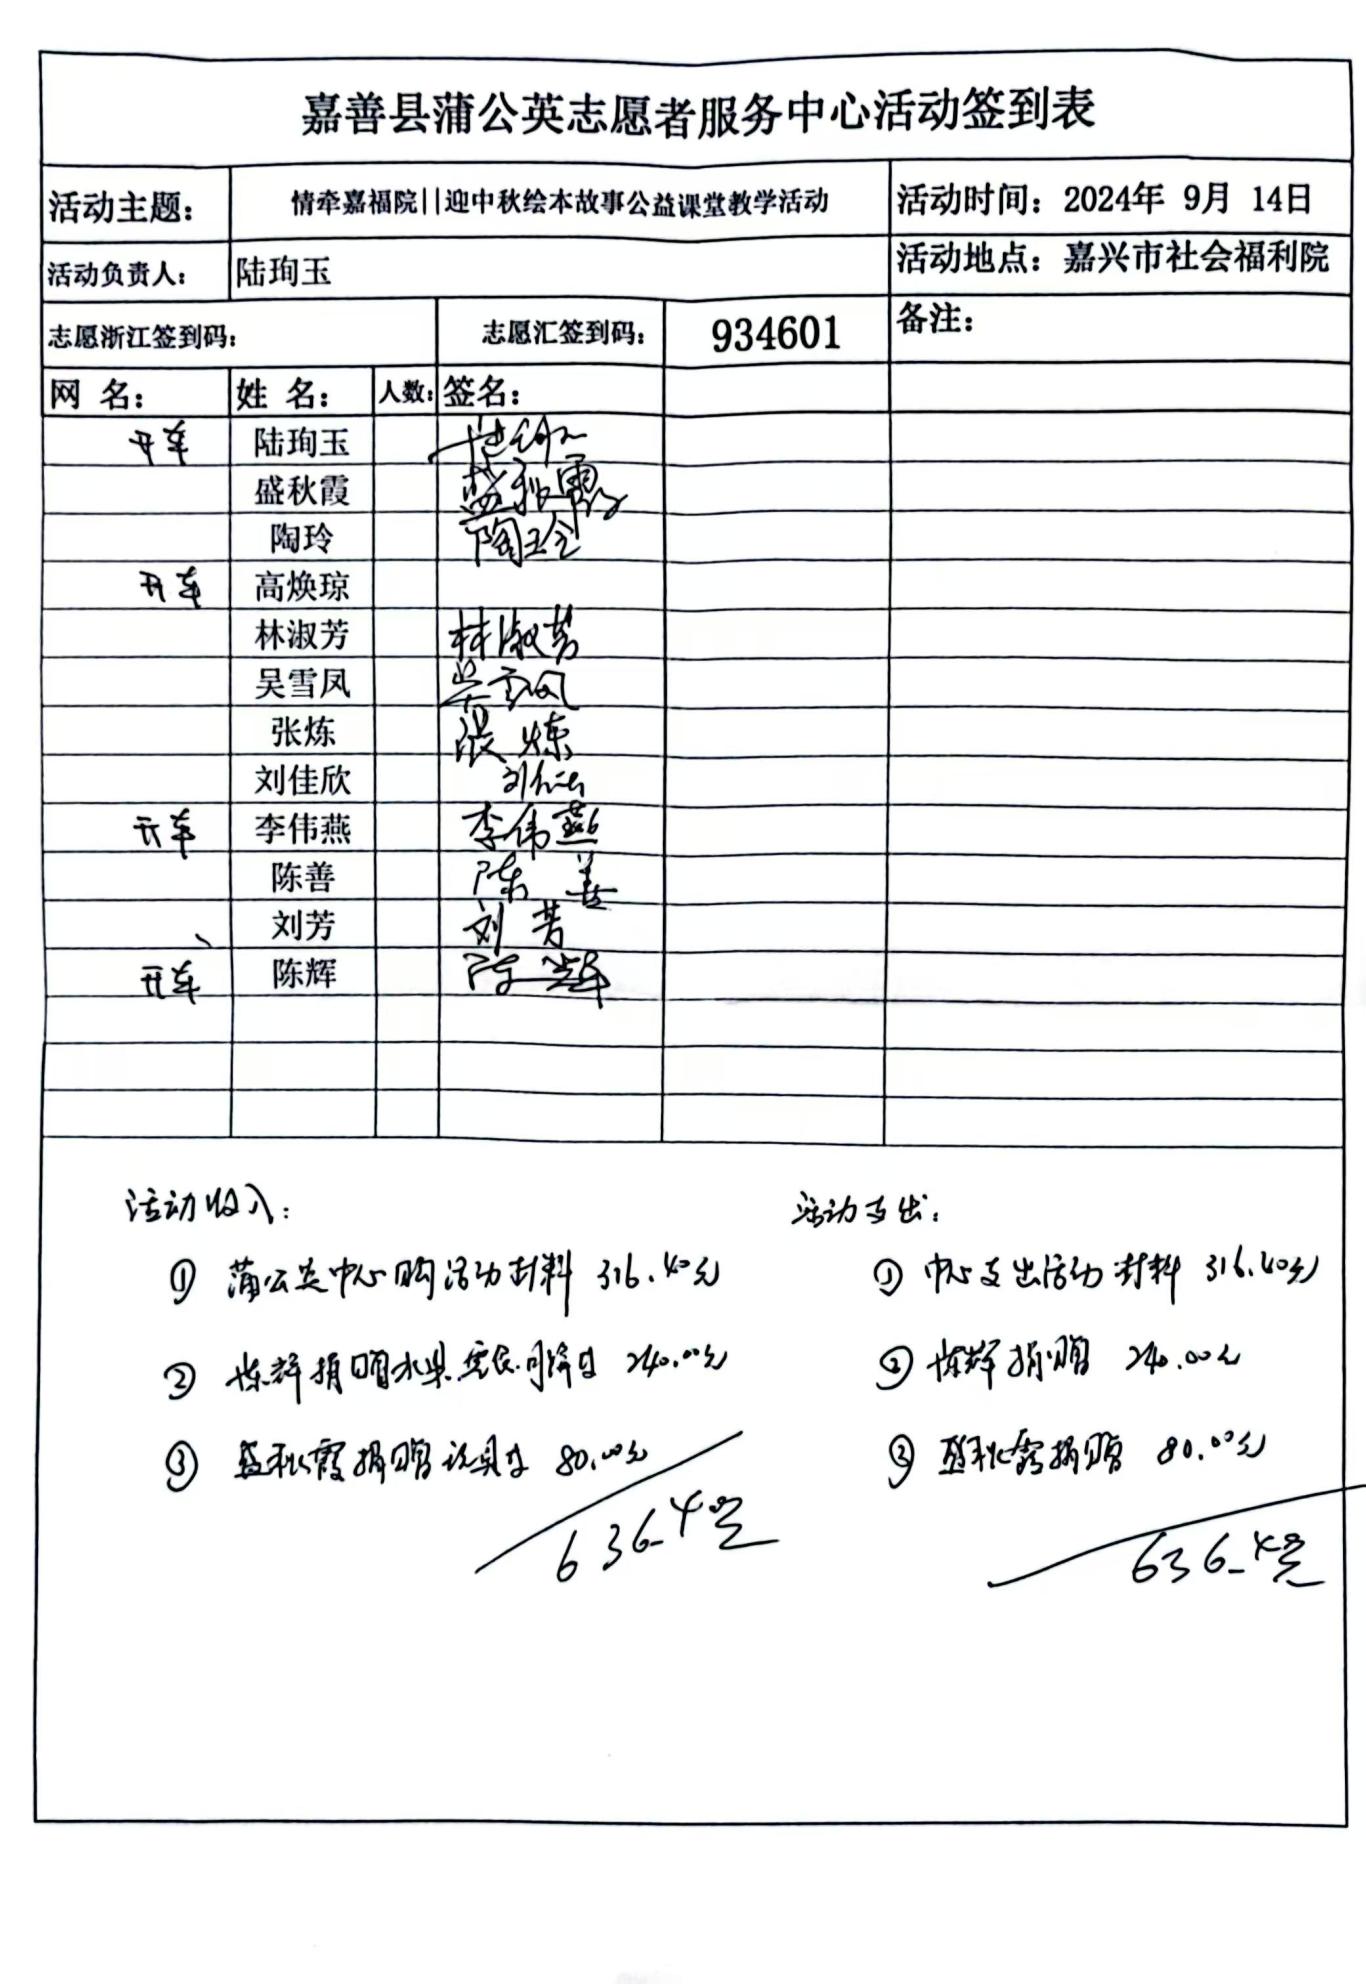 嘉善县蒲公英志愿者服务中心活动签到表
活动主题： 情牵嘉福院||迎中秋绘本故事公益课堂教学活动 活动时间：2024年 9月 14日
活动负责人： 陆珣玉 活动地点：嘉兴市社会福利院
志愿浙江签到码： 志愿汇签到码： 934601 备注：
网 名： 姓 名： 人数： 签名：
开车 陆珣玉
盛秋霞 盛秋霞
陶玲 陶玲
开车 高焕琼
林淑芳 林淑芳
吴雪凤 吴雪凤
张炼 张炼
刘佳欣
开车 李伟燕 李伟燕
陈善 陈善
刘芳 刘芳
开车 陈辉 陈辉
活动收入： 活动支出：
① 蒲公英中心购活动材料 316.40元 ① 中心支出活动材料 316.40元
② 陈辉捐赠水果 240.00元 ② 陈辉捐赠 240.00元
③ 盛秋霞捐赠 80.00元 ③ 盛秋霞捐赠 80.00元
636.4元 636.4元